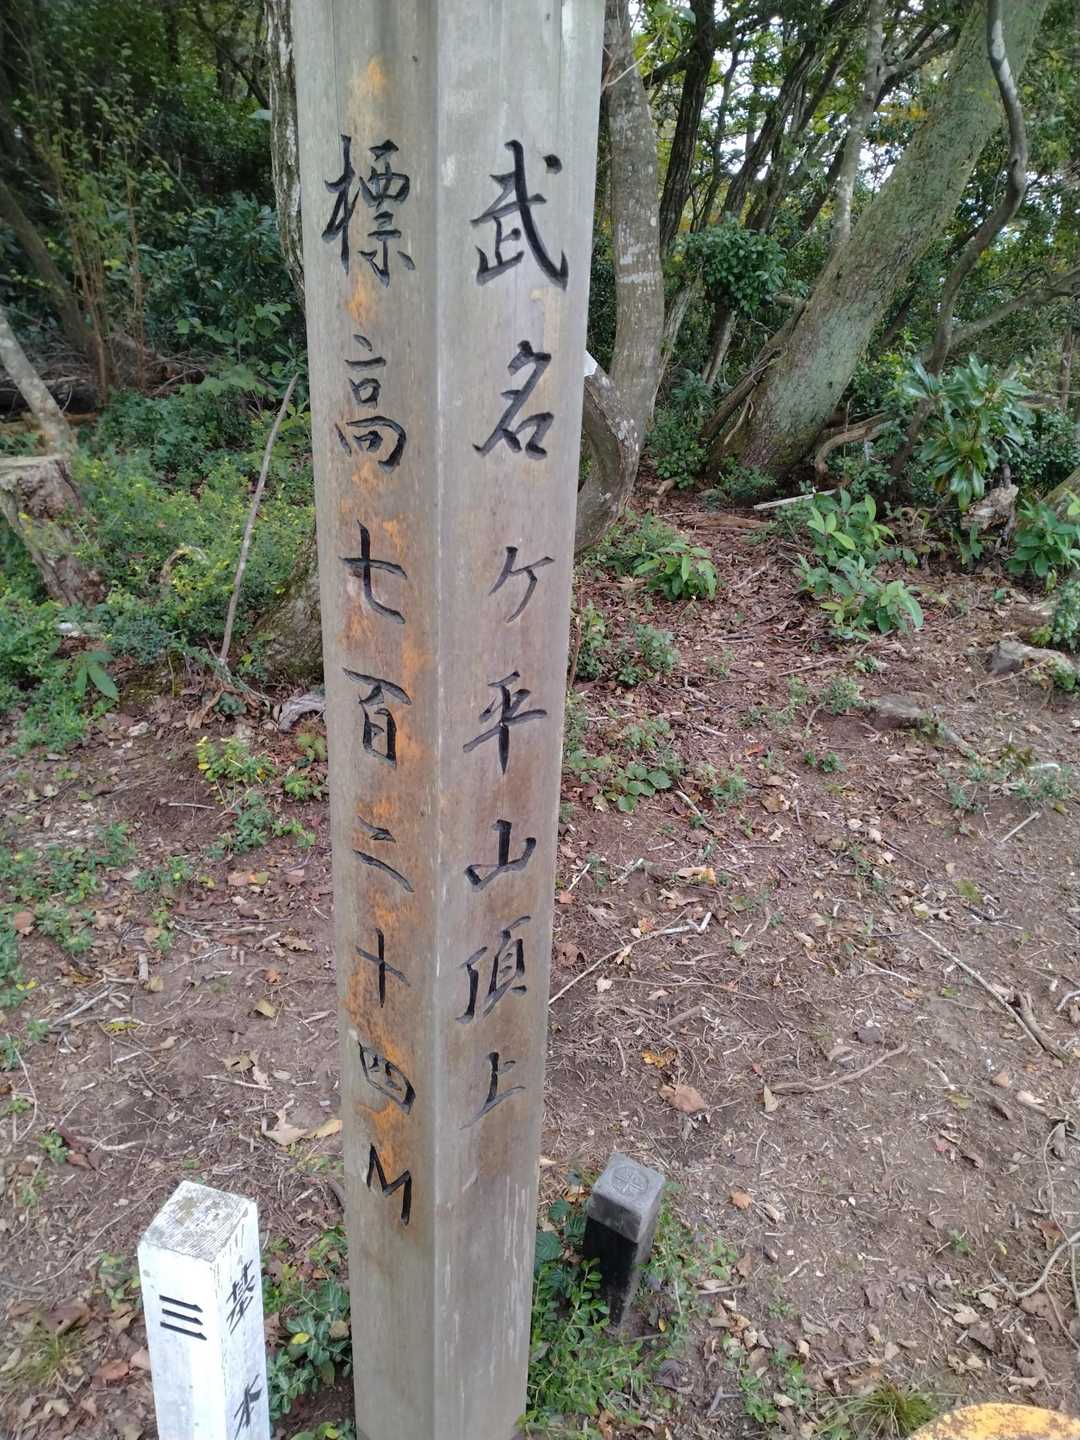 武名ケ平山頂上
標高七百二十四M
基本
三